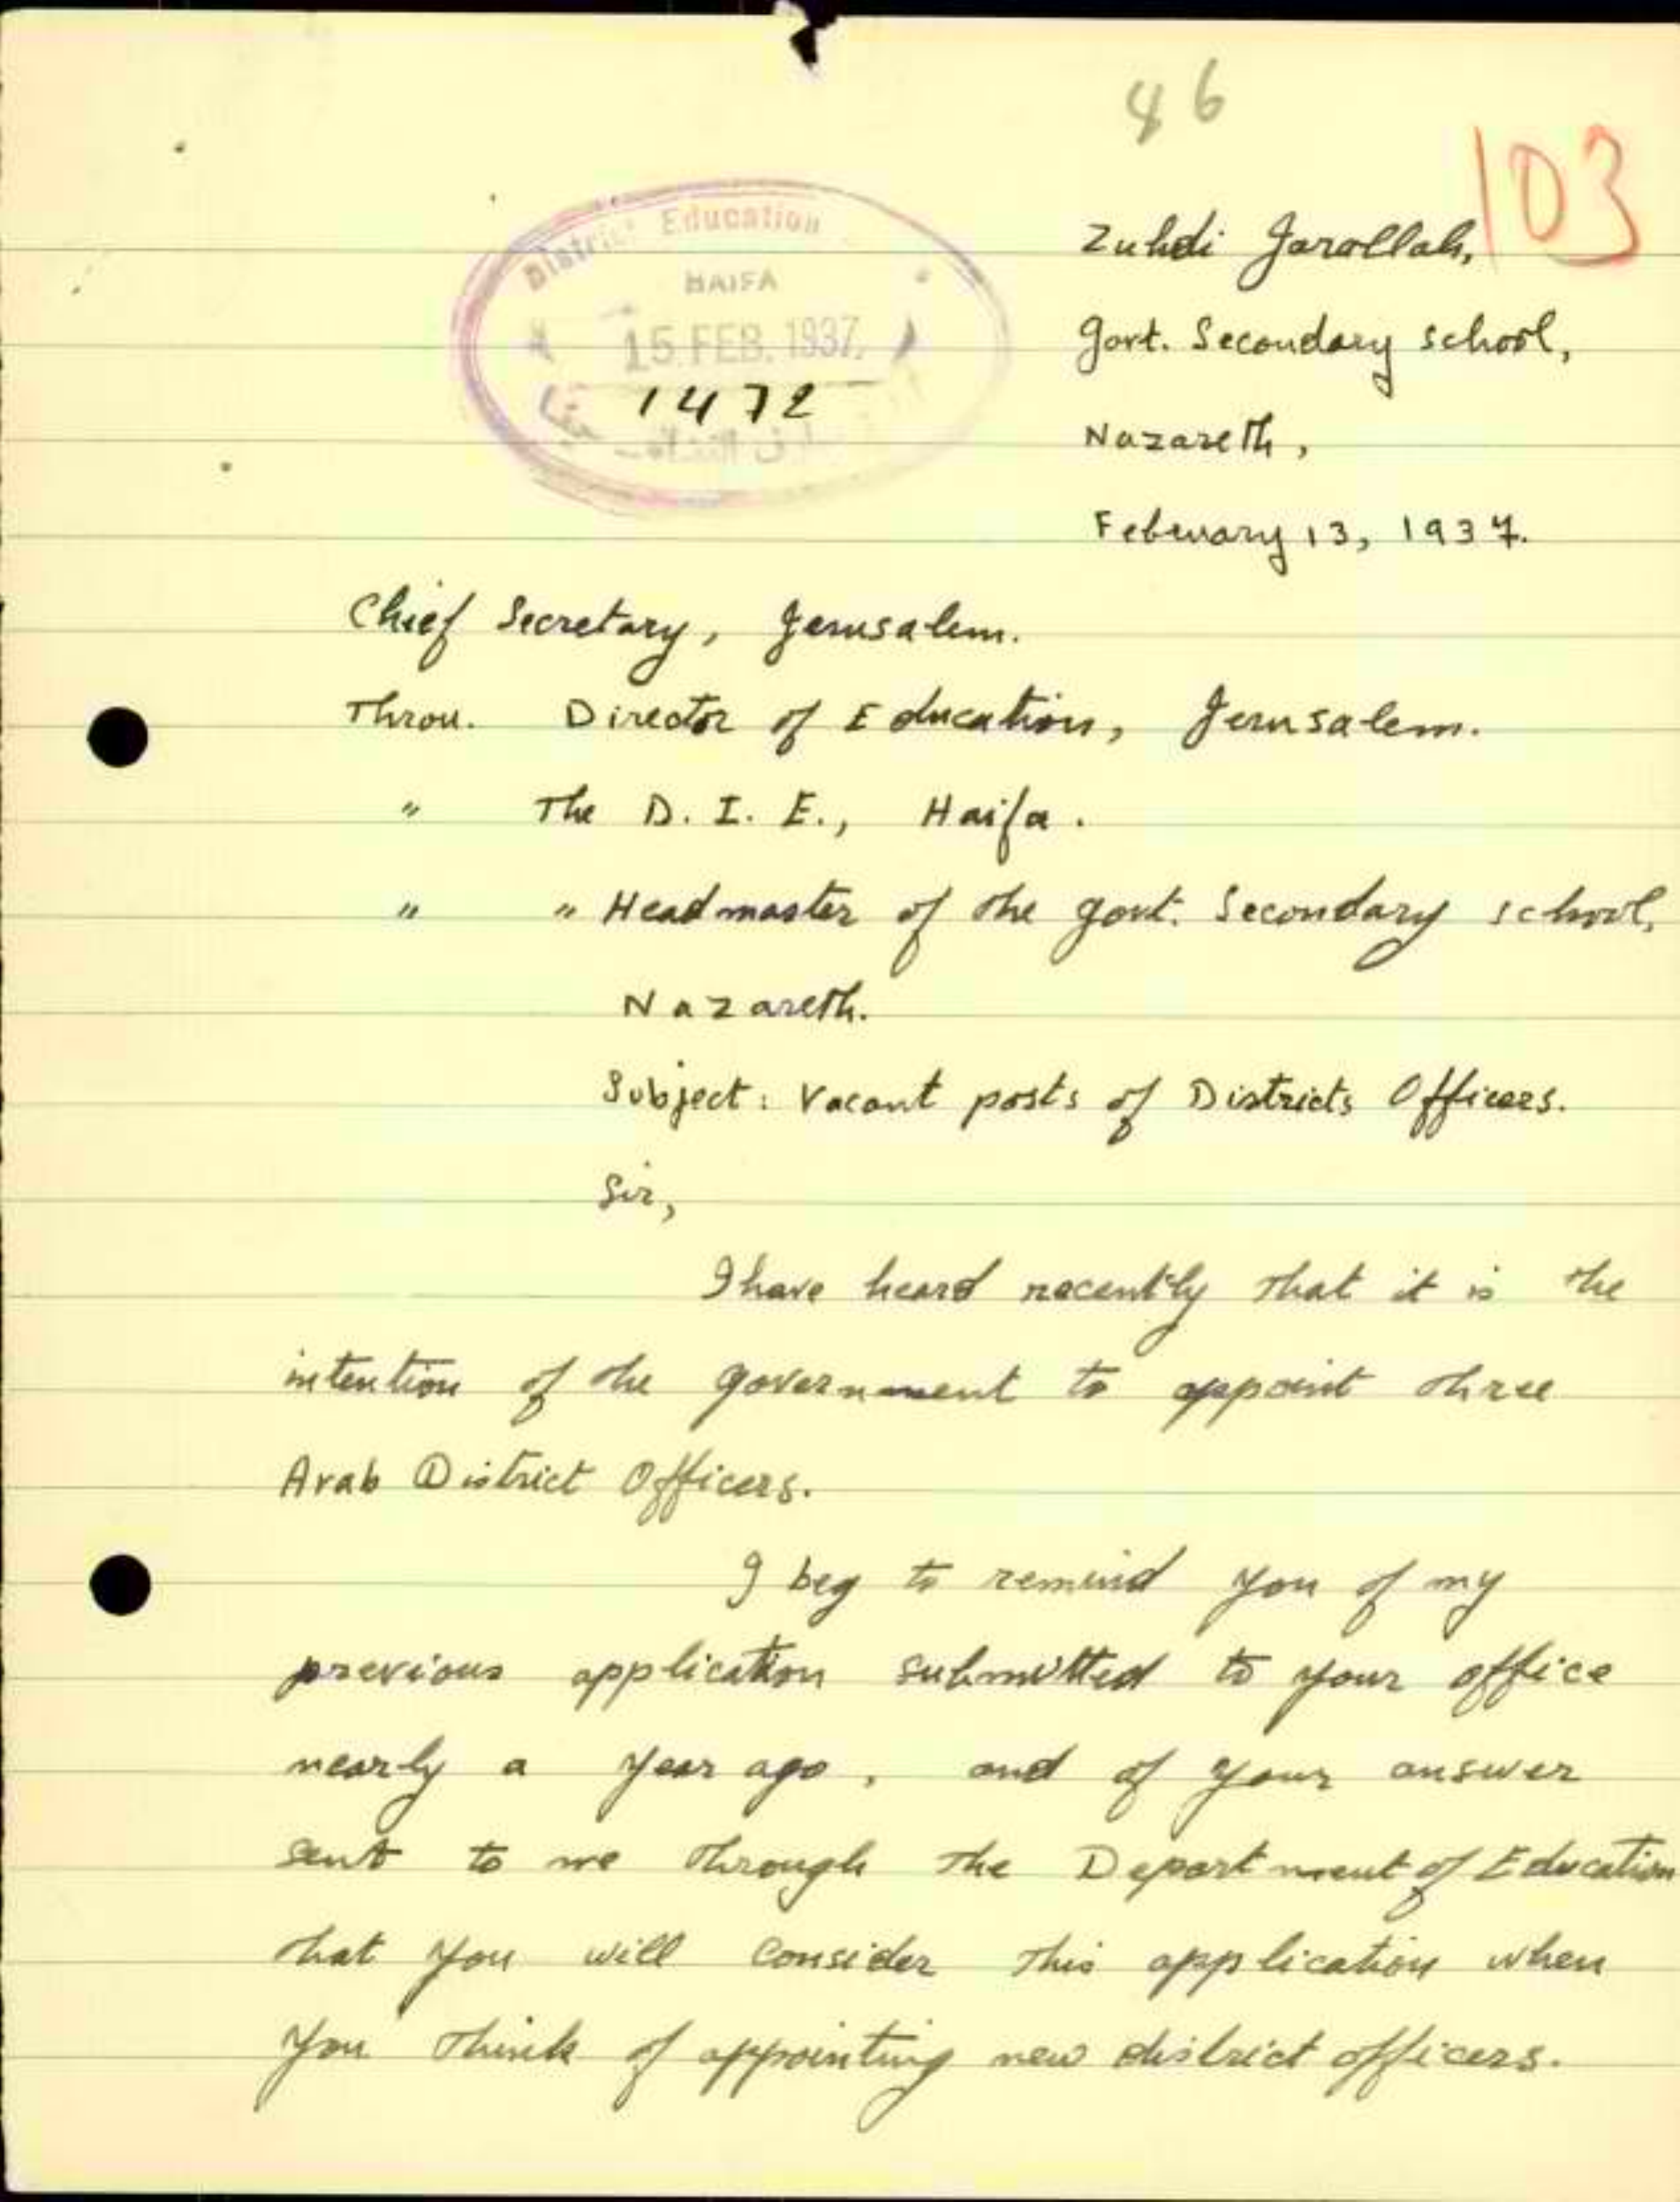 86
103
District Education
HAIFA
15 FEB. 1937
1472
حيفا
Zuhdi Jarollah,
Govt. Secondary school,
Nazareth,
February 13, 1937.
Chief Secretary, Jerusalem.
Throu. Director of Education, Jerusalem.
" The D. I. E., Haifa.
" " Headmaster of the govt. Secondary school,
Nazareth.
Subject: Vacant posts of Districts Officers.
Sir,
I have heard recently that it is the
intention of the government to appoint three
Arab District Officers.
I beg to remind you of my
previous application submitted to your office
nearly a year ago, and of your answer
sent to me through the Department of Education
that you will consider this application when
you think of appointing new district officers.